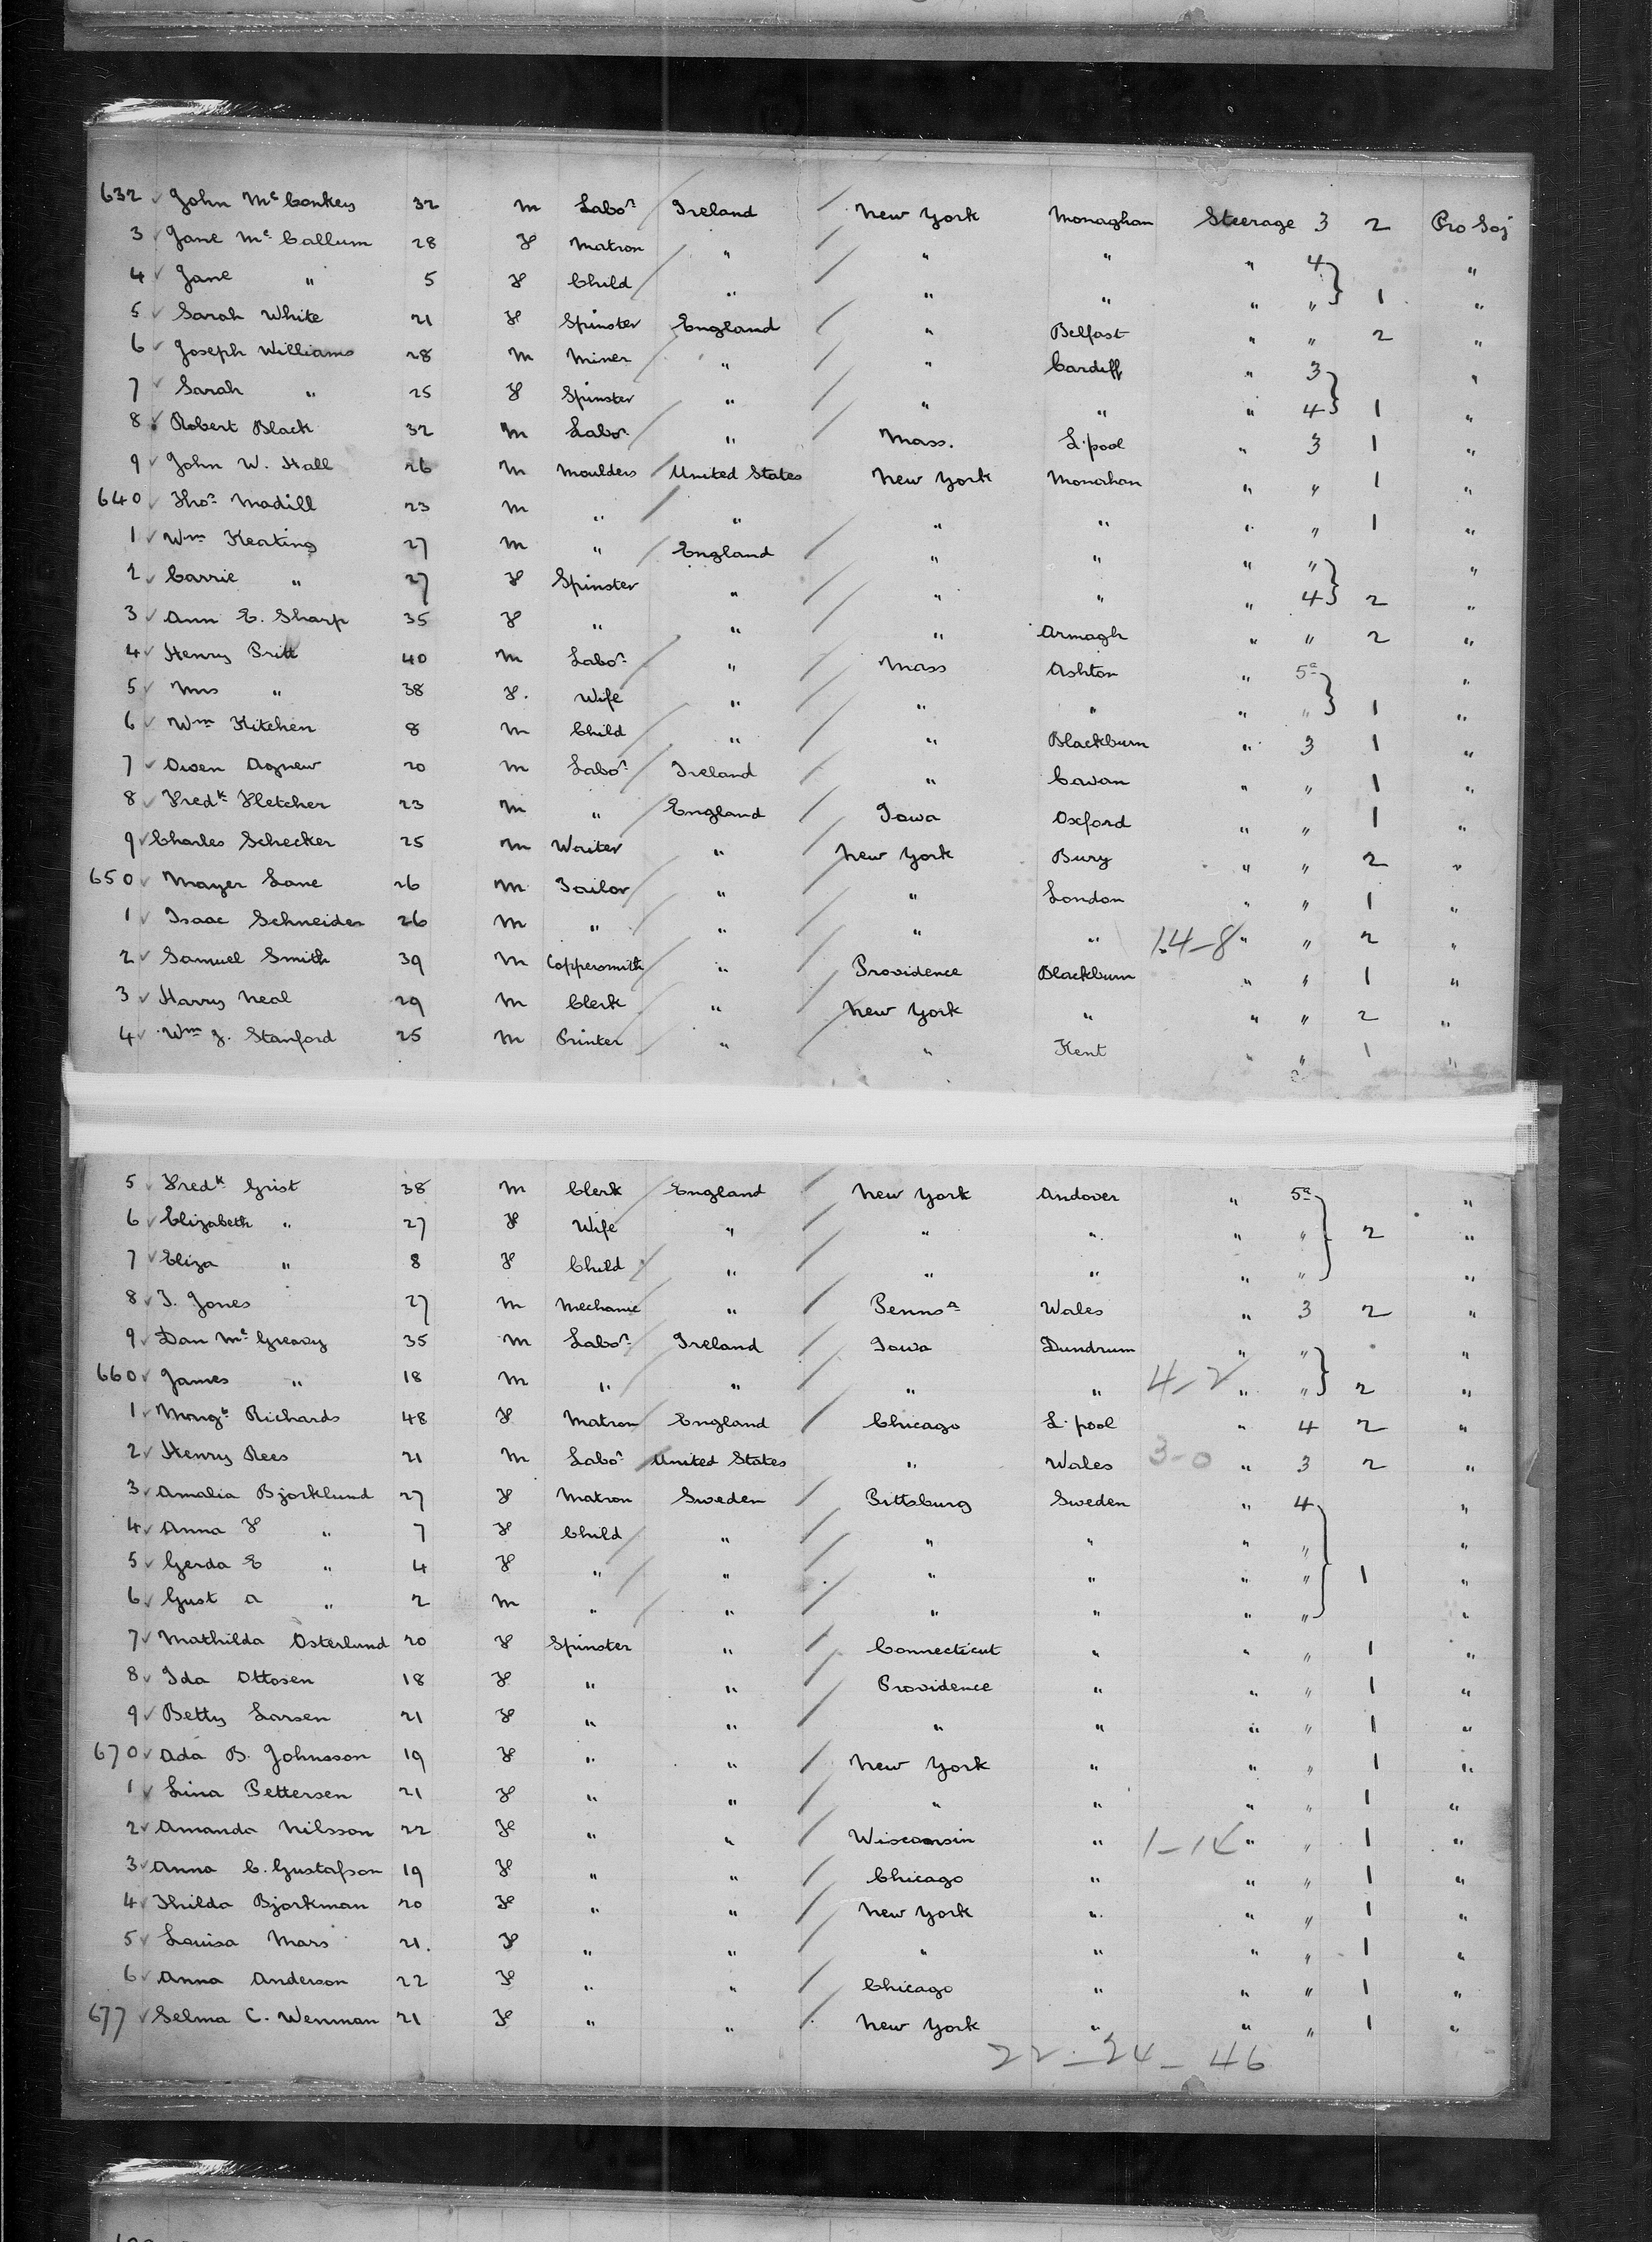 632 John McConkey 32 M Labor Ireland New York Monaghan Steerage 3 2 Pro Soj
3 Jane McCallum 28 F Matron " " " " 4 "
4 Jane " 5 F Child " " " " " 1 "
5 Sarah White 21 F Spinster England " Belfast " " 2 "
6 Joseph Williams 28 M Miner " " Cardiff " 3 "
7 Sarah " 25 F Spinster " " " " 4 1 "
8 Robert Black 32 M Labor " Mass. L'pool " 3 1 "
9 John W. Hall 26 M Moulders United States New York Monahan " " 1 "
640 Thos Madill 23 M " " " " " " 1 "
1 Wm Keating 27 M " England " " " " "
2 Carrie " 27 F Spinster " " " " 4 2 "
3 Ann E. Sharp 35 F " " " Armagh " " 2 "
4 Henry Britt 40 M Labor " Mass Ashton " 5a "
5 Mrs " 38 F. Wife " " " " " 1 "
6 Wm Kitchen 8 M Child " " Blackburn " 3 1 "
7 Owen Agnew 20 M Labor Ireland " Cavan " " 1 "
8 Fredk Fletcher 23 M " England Iowa Oxford " " 1 "
9 Charles Schecker 25 M Waiter " New York Bury " " 2 "
650 Mayer Lane 26 M Tailor " " London " " 1 "
1 Isaac Schneider 26 M " " " " 14-8 " " 2 "
2 Samuel Smith 39 M Coppersmith " Providence Blackburn " " 1 "
3 Harry Neal 29 M Clerk " New York " " " 2 "
4 Wm J. Stanford 25 M Printer " " Kent " " 1 "
5 Fredk Grist 38 M Clerk England New York Andover " 5a "
6 Elizabeth " 27 F Wife " " " " " 2 "
7 Eliza " 8 F Child " " " " " "
8 T. Jones 27 M Mechanic " Penna Wales " 3 2 "
9 Dan McGreavy 35 M Labor Ireland Iowa Dundrum " " "
660 James " 18 M " " " " 4-2 " " 2 "
1 Margt Richards 48 F Matron England Chicago L'pool " 4 2 "
2 Henry Rees 21 M Labor United States " Wales 3-0 " 3 2 "
3 Amalia Bjorklund 27 F Matron Sweden Pittsburg Sweden " 4 "
4 Anna F " 7 F Child " " " " " "
5 Gerda E " 4 F " " " " " " 1 "
6 Gust A " 2 M " " " " " " "
7 Mathilda Osterlund 20 F Spinster " Connecticut " " " 1 "
8 Ida Ottosen 18 F " " Providence " " " 1 "
9 Betty Larsen 21 F " " " " " " 1 "
670 Ada B. Johnsson 19 F " " New York " " " 1 "
1 Lina Pettersen 21 F " " " " " " 1 "
2 Amanda Nilsson 22 F " " Wisconsin " " " 1 "
3 Anna C. Gustafson 19 F " " Chicago " " " 1 "
4 Thilda Bjorkman 20 F " " New York " " " 1 "
5 Louisa Mars 21. F " " " " " " 1 "
6 Anna Anderson 22 F " " Chicago " " " 1 "
677 Selma C. Wenman 21 F " " New York " " " 1 "
22-24-46